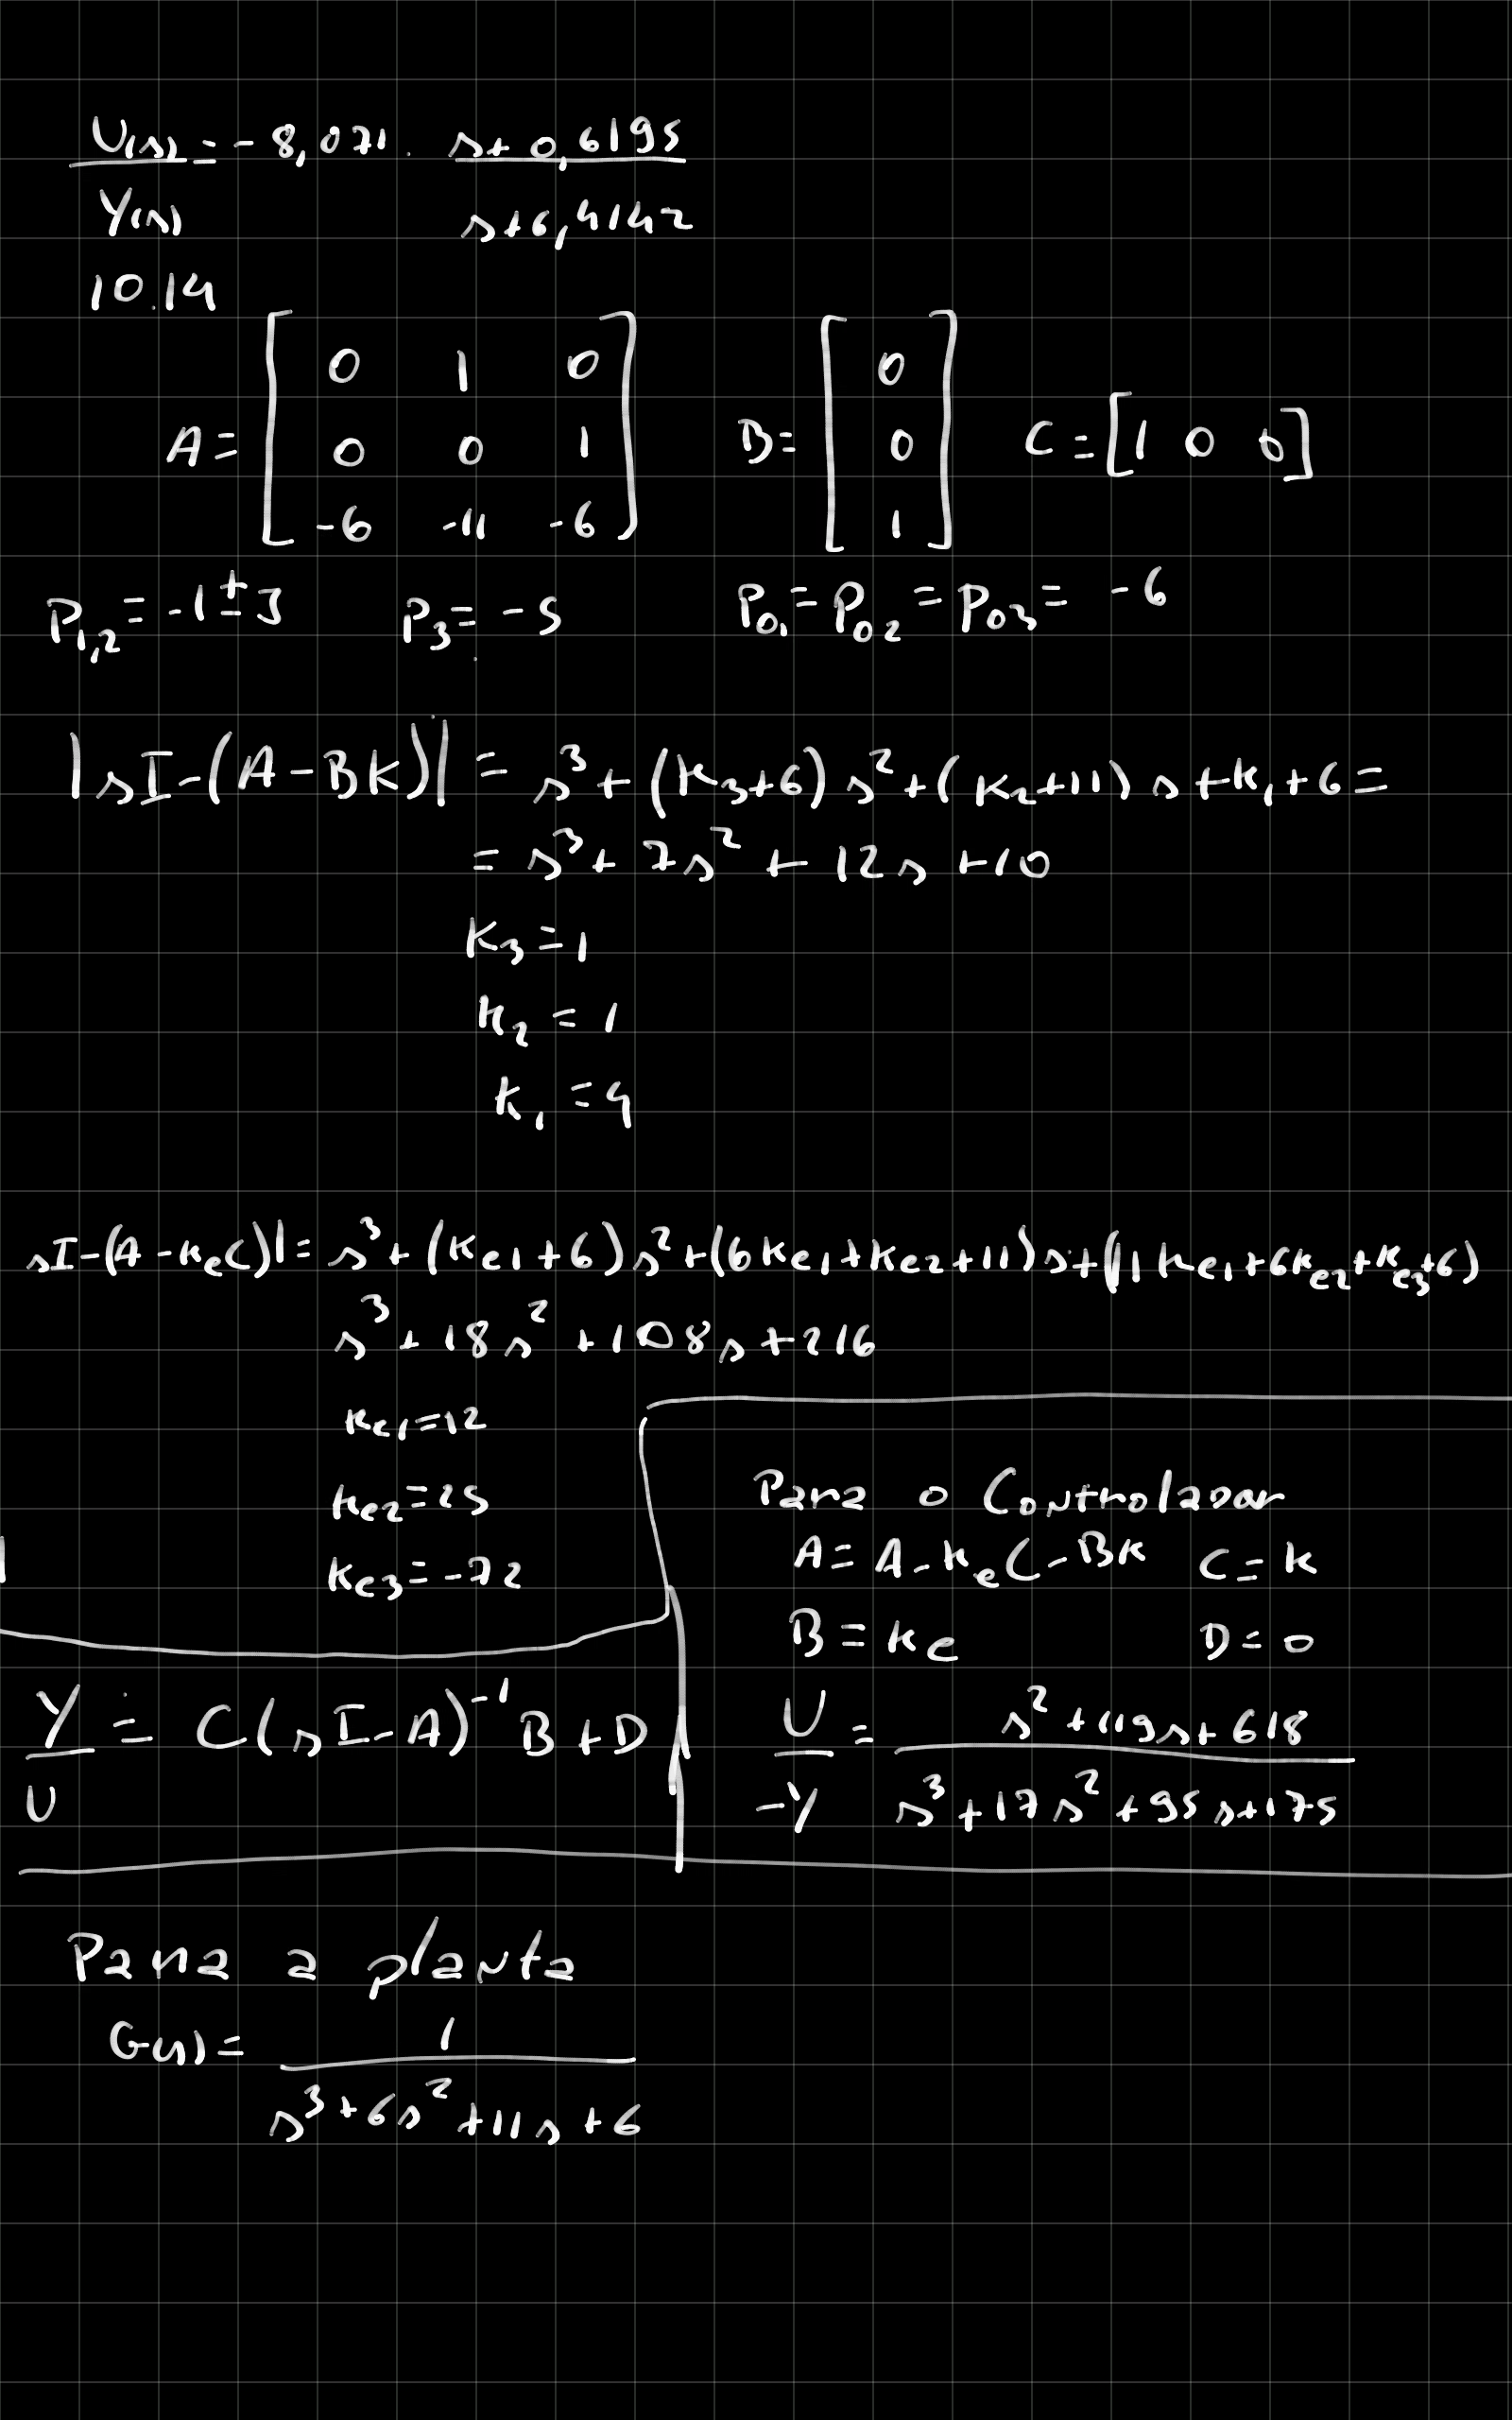 U(s) = -8,071 . s+0,6195
Y(s) s+6,4142
10.14
A = [ 0 1 0 ; 0 0 1 ; -6 -11 -6 ] B = [ 0 ; 0 ; 1 ] C = [1 0 0]
P1,2 = -1 ± J P3 = -5 Po1 = Po2 = Po3 = -6
|sI-(A-BK)| = s³+(K3+6)s²+(K2+11)s+K1+6=
= s³+7s²+12s+10
K3=1
K2=1
K1=4
sI-(A-KeC)|= s³+(Ke1+6)s²+(6Ke1+Ke2+11)s+(11Ke1+6Ke2+Ke3+6)
s³+18s²+108s+216
Ke1=12
Ke2=25
Ke3=-72
Para o Controlador
A=A-KeC-BK C=K
B=Ke D=0
Y/U = C(sI-A)⁻¹B+D
U/-Y = (s²+119s+618)/(s³+17s²+95s+175)
Para a planta
G(s)= 1
s³+6s²+11s+6